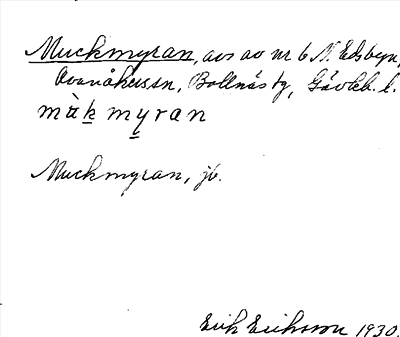 Muckmyran, avs av nr 6 N. Edsbyn,
Ovanåkers sn, Bollnäs tg, Gävleb. l.
màk myran
Muckmyran, jv.
Erik Eriksson 1930.